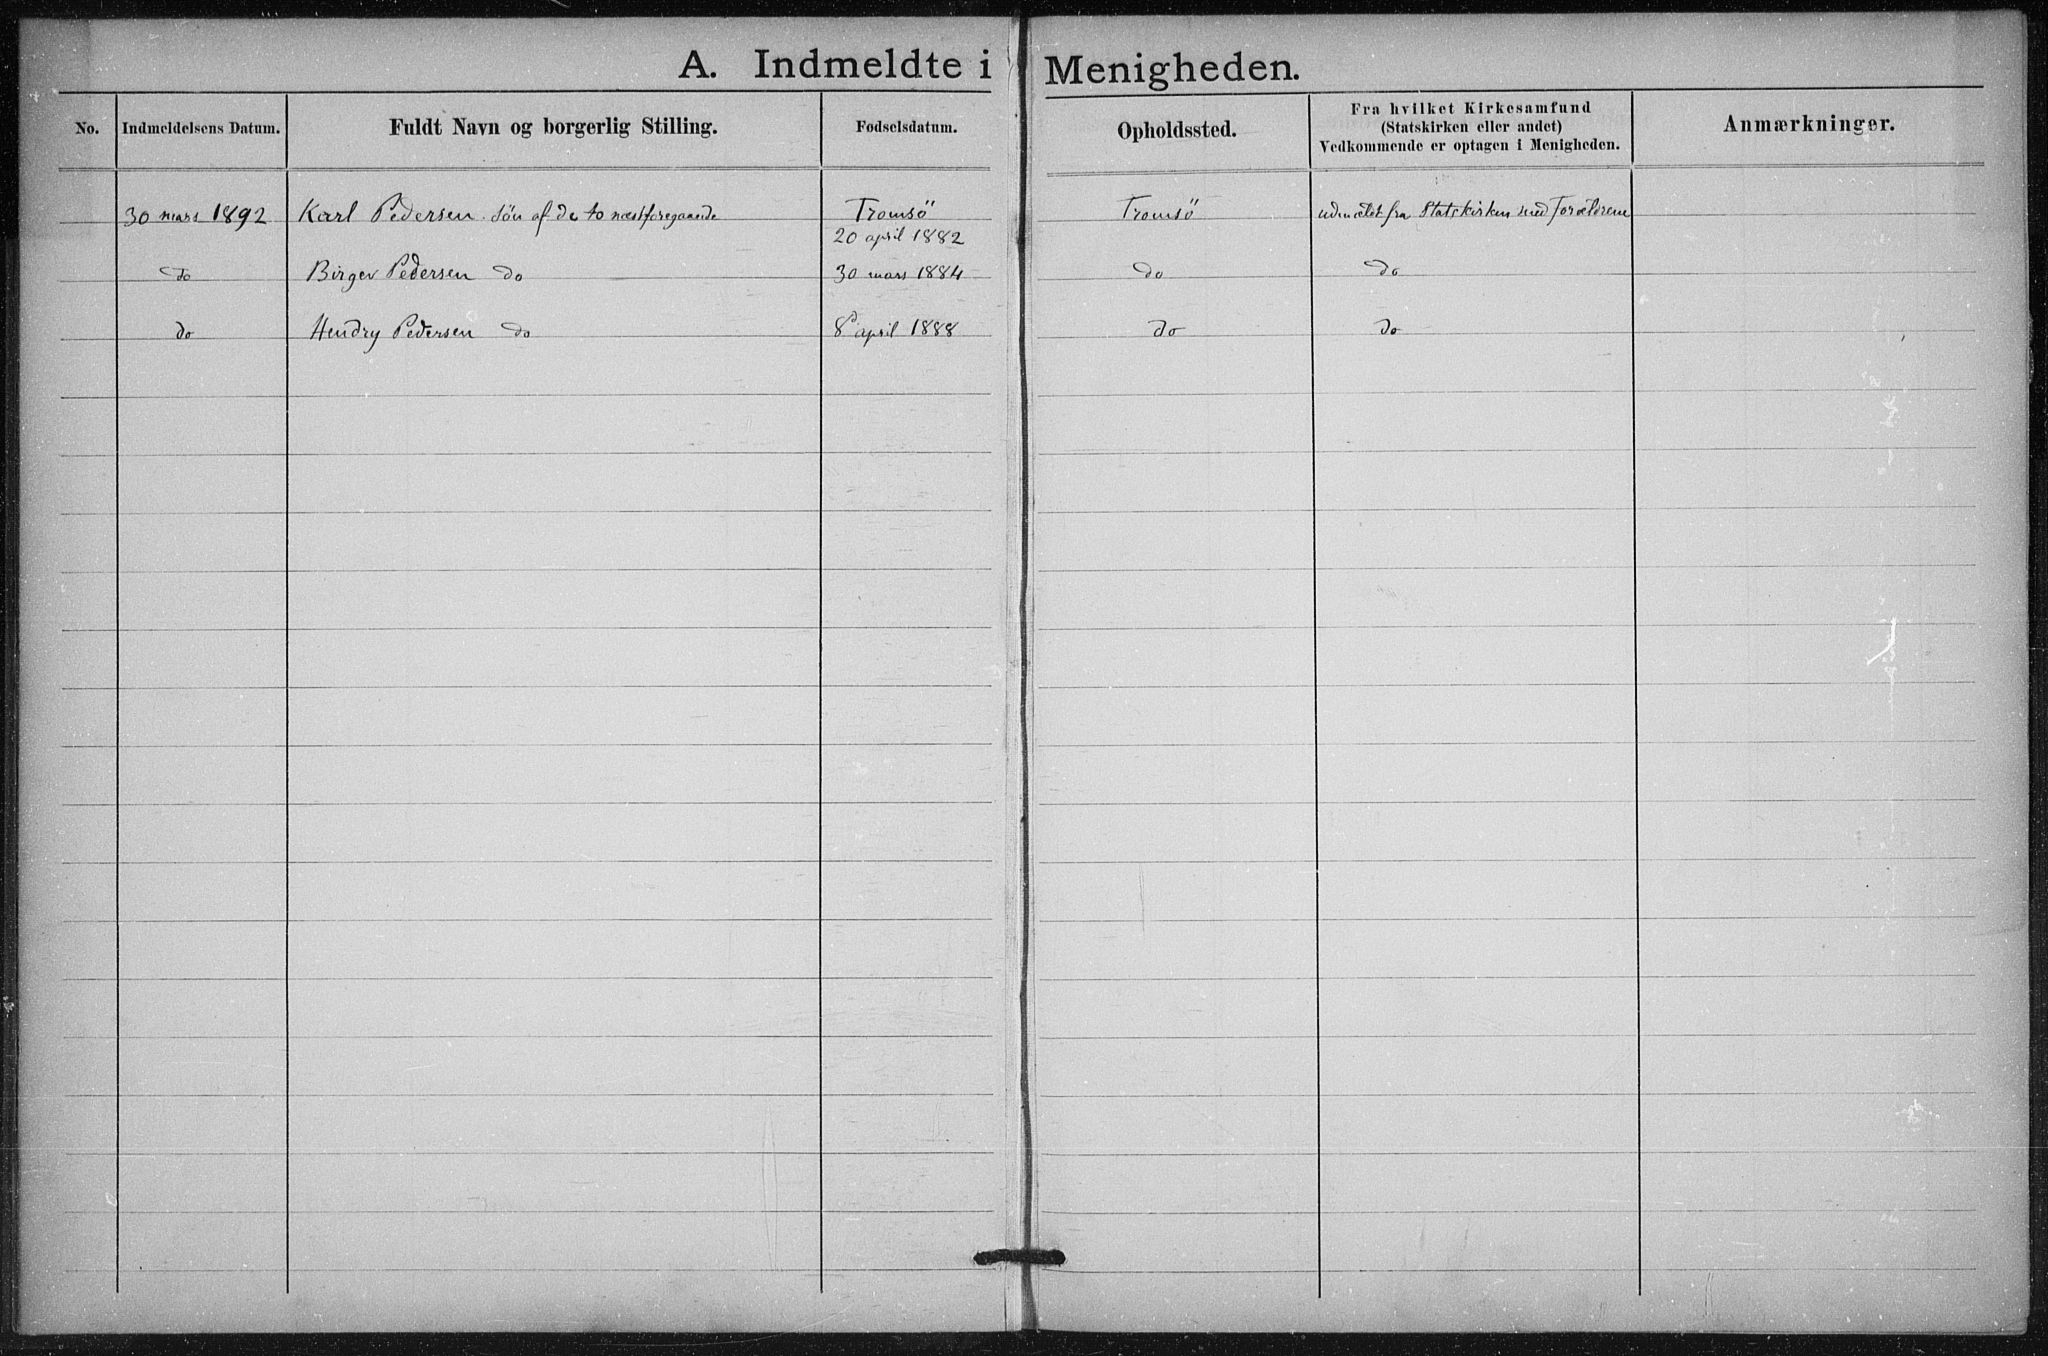 A. Indmeldte i Menigheden.
No. Indmeldelsens Datum. Fuldt Navn og borgerlig Stilling. Fødselsdatum. Opholdssted. Fra hvilket Kirkesamfund (Statskirken eller andet) Vedkommende er optagen i Menigheden. Anmærkninger.
30 mars 1892 Karl Pedersen. Søn af de to næstforegaaende Tromsö Tromsö udmældt fra Statskirken med Forældrene
20 april 1882
do Birger Pedersen do 30 mars 1884 do do
do Hendry Pedersen do 8 april 1888 do do